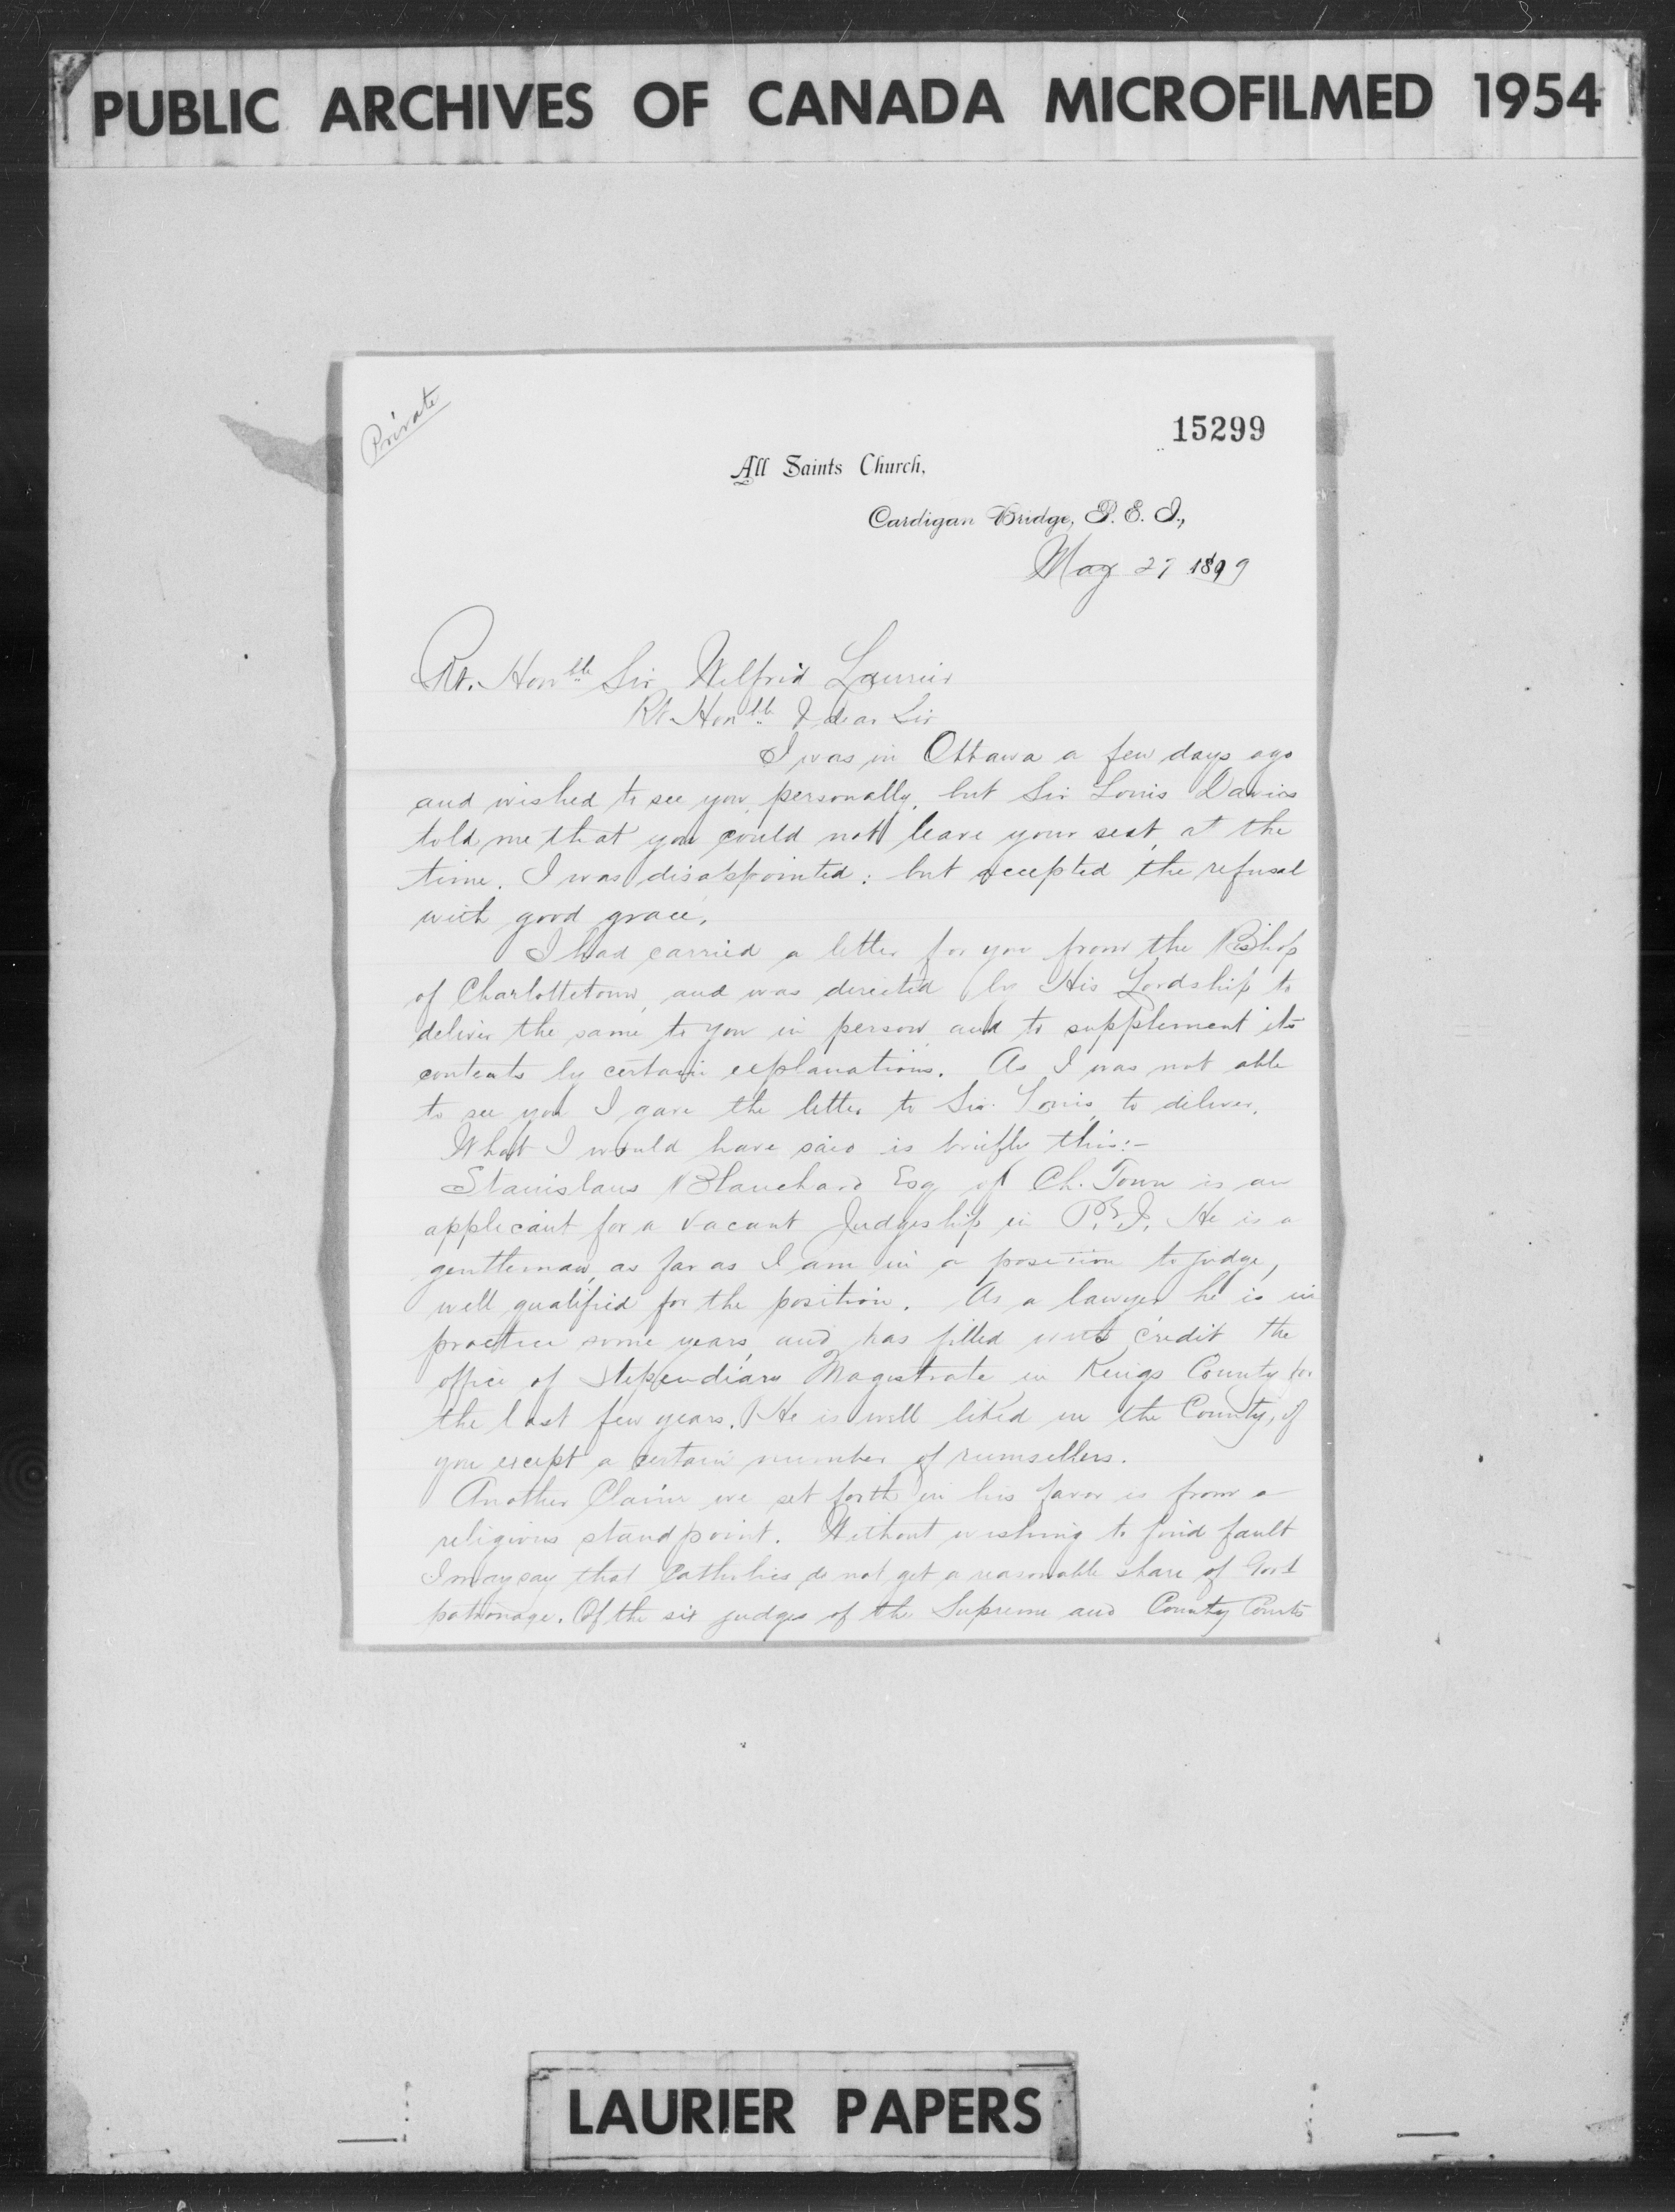 PUBLIC ARCHIVES OF CANADA MICROFILMED 1954
Private
15299
All Saints Church,
Cardigan Bridge, P. E. I.,
May 27 1899
Rt. Honble Sir Wilfrid Laurier
Rt. Honble & dear Sir
I was in Ottawa a few days ago
and wished to see you personally, but Sir Louis Davies
told me that you could not leave your seat, at the
time. I was disappointed: but accepted the refusal
with good grace.
I had carried a letter for you from the Bishop
of Charlottetown, and was directed by His Lordship to
deliver the same to you in person, and to supplement its
contents by certain explanations. As I was not able
to see you I gave the letter to Sir Louis, to deliver.
What I would have said is briefly this:-
Stanislaus Blanchard Esq of Ch. Town is an
applicant for a vacant Judgeship in P.E.I. He is a
gentleman, as far as I am in a position to judge,
well qualified for the position. As a lawyer he is in
practice some years, and has filled with credit the
office of Stipendiary Magistrate in Kings County for
the last few years. He is well liked in the County, if
you except a certain number of rumsellers.
Another Claim we set forth in his favor is from a
religious standpoint. Without wishing to find fault
I may say that Catholics do not get a reasonable share of Govt
patronage. Of the six judges of the Supreme and County Courts
LAURIER PAPERS